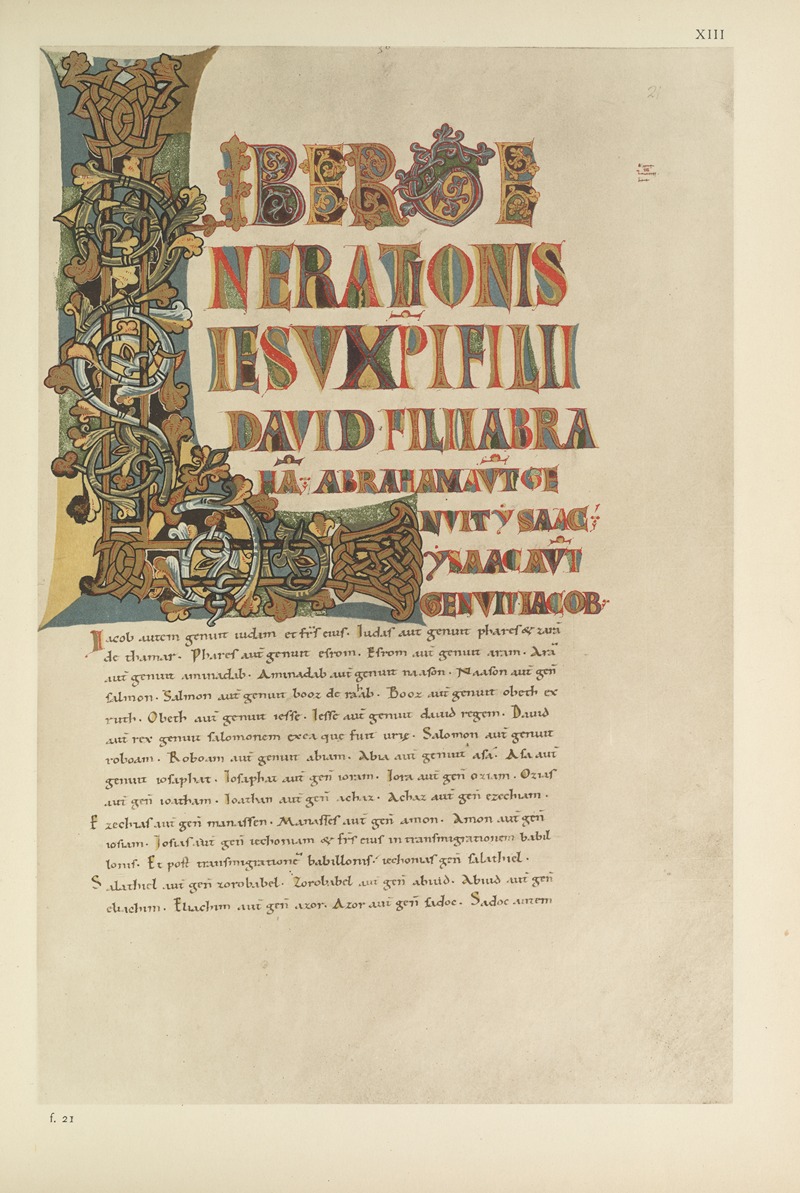 XIII
21
LIBER GE
NERATIONIS
IESV XPI FILII
DAVID · FILII ABRA
HĀ; ABRAHAM AVT GE
NVIT ẎSAAC;
ẎSAAC AVT
GENVIT IACOB·
Iacob autem genuit iudam et fr̄s eius. Iudas aut̄ genuit phares & zarā
de thamar. Phares aut̄ genuit esrom. Esrom aut̄ genuit aram. Arā
aut̄ genuit aminadab. Aminadab aut̄ genuit naason. Naason aut̄ gen̄
salmon. Salmon aut̄ genuit booz de rahab. Booz aut̄ genuit obeth ex
ruth. Obeth aut̄ genuit iesse. Iesse aut̄ genuit dauid regem. Dauid
aut̄ rex genuit salomonem ex ea que fuit urię. Salomon aut̄ genuit
roboam. Roboam aut̄ genuit abiam. Abia aut̄ genuit asa. Asa aut̄
genuit iosaphat. Iosaphat aut̄ gen̄ ioram. Iora aut̄ gen̄ oziam. Ozias
aut̄ gen̄ ioatham. Ioathan aut̄ gen̄ achaz. Achaz aut̄ gen̄ ezechiam.
Ezechias aut̄ gen̄ manassen. Manasses aut̄ gen̄ amon. Amon aut̄ gen̄
iosiam. Iosias aut̄ gen̄ iechoniam & fr̄s eius in transmigrationem babil
lonis. Et post transmigrationē babillonis. iechonias gen̄ salathiel.
Salathiel aut̄ gen̄ zorobabel. Zorobabel aut̄ gen̄ abiud. Abiud aut̄ gen̄
eliachim. Eliachim aut̄ gen̄ azor. Azor aut̄ gen̄ sadoc. Sadoc autem
f. 21